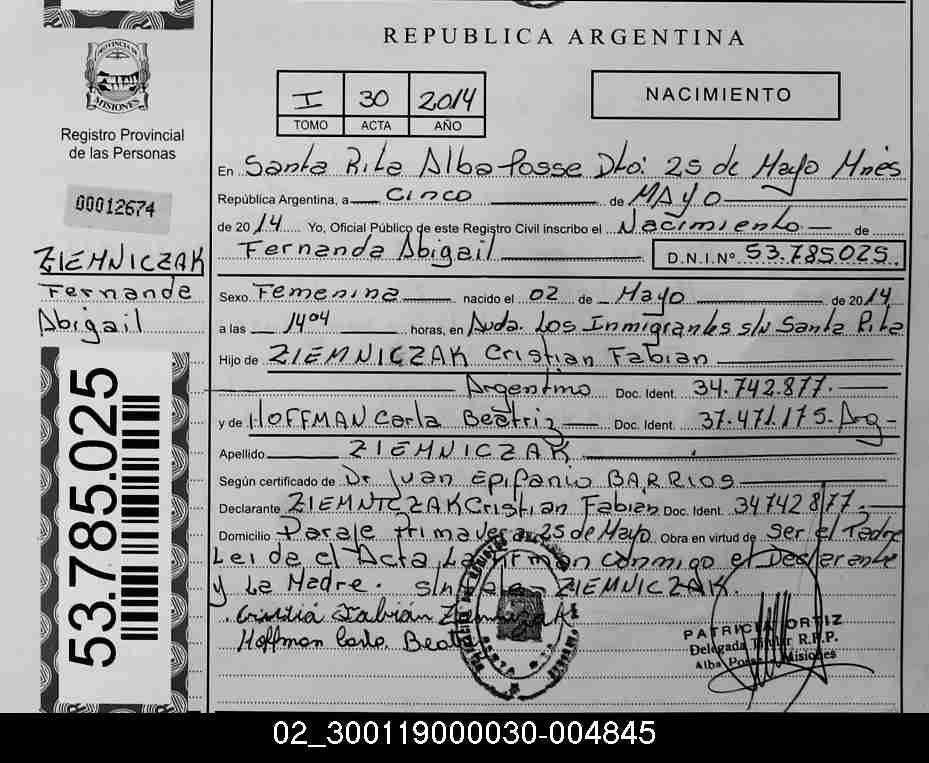 REPUBLICA ARGENTINA
PROVINCIA DE
MISIONES
Registro Provincial
de las Personas
I 30 2014
TOMO ACTA AÑO
NACIMIENTO
00012674
En Santa Rita Alba Posse Dto: 25 de Mayo Mnes
República Argentina, a Cinco de MAYO
de 2014 Yo, Oficial Público de este Registro Civil inscribo el Nacimiento de
Fernanda Abigail D.N.I.Nº 53.785.025.
ZIEMNICZAK
Fernanda
Abigail
53.785.025
Sexo. Femenina nacido el 02 de Mayo de 2014
a las 1404 horas, en Avda. Los Inmigrantes s/n Santa Rita
Hijo de ZIEMNICZAK Cristian Fabian
Argentino Doc. Ident. 34.742.877.
y de HOFFMAN Carla Beatriz Doc. Ident. 37.471.175. Arg
Apellido ZIEMNICZAK
Según certificado de Dr Juan Epifanio BARRIOS
Declarante ZIEMNICZAK Cristian Fabian Doc. Ident. 34742877.
Domicilio Paraje Primavera 25 de Mayo Obra en virtud de ser el Padre
Leida el Acta La firman conmigo el Declarante
y La Madre. s/n ZIEMNICZAK.
Cristian Fabián
Hoffman Carla Beatriz
PATRICIA ORTIZ
Delegada Titular R.P.P.
Alba Posse Misiones
02_300119000030-004845